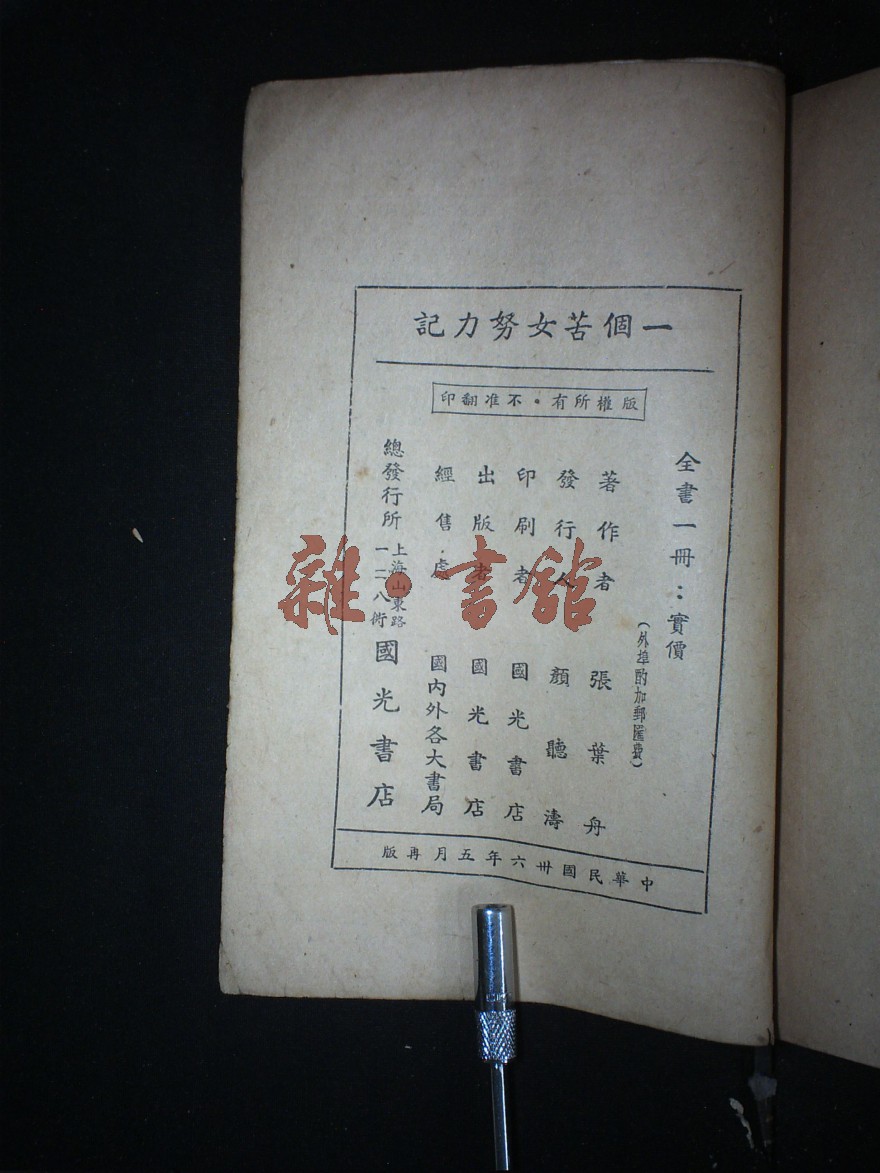 一個苦女努力記
版權所有。不准翻印
全書一冊：實價
（外埠酌加郵匯費）
著作者 張葉舟
發行人 顏聽濤
印刷者 國光書店
出版者 國光書店
經售處 國內外各大書局
總發行所 上海山東路一二八衖 國光書店
中華民國卅六年五月再版
雜·書館